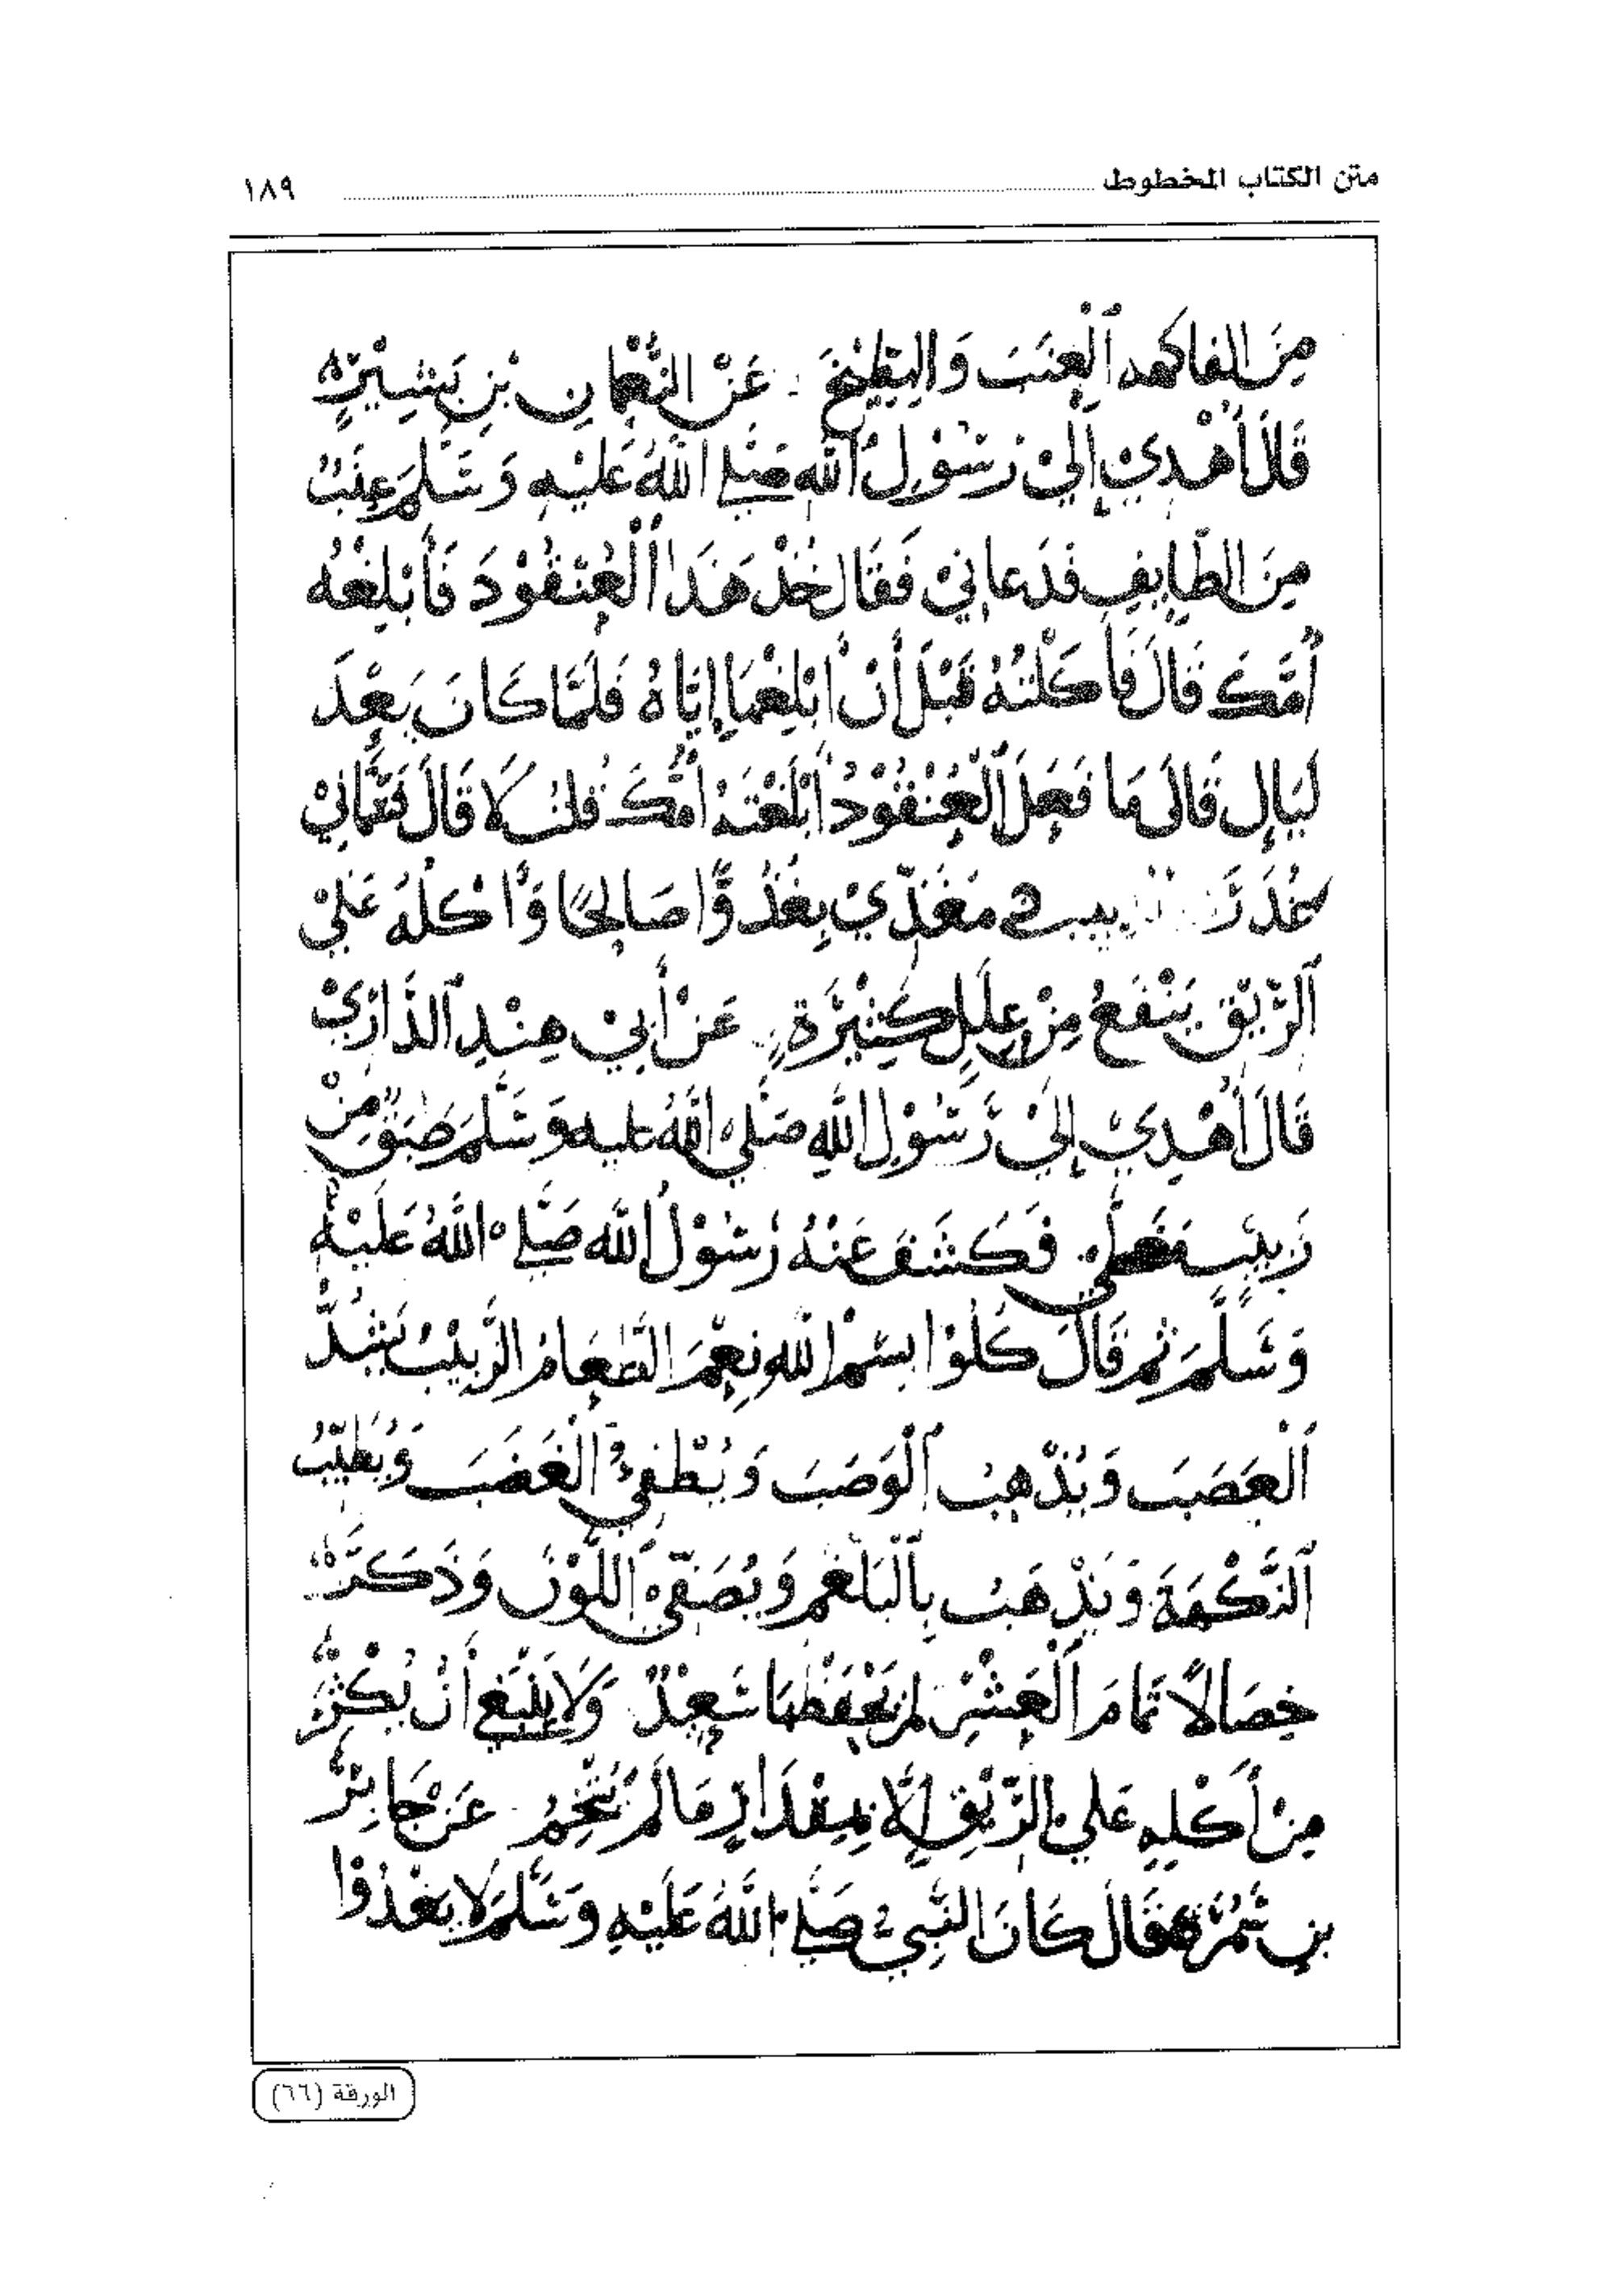 متن الكتاب المخطوط ١٨٩
مِنَ الفاكهه اَلْعِنَبَ وَالبِطِّيْخَ عَنْ النُّعْمَانِ بْنِ بَشِيْرٍ
قَالَ أُهْدِيْ إِلَيْ رَسُوْلِ اللهِ صَلّي اللهُ عَلَيْهِ وَسَلَّمَ عِنَبٌ
مِنَ الطَّايِفِ فَدَعَانِيْ فَقَالَ خُذْ هَذَا اَلْعُنْقُوْدَ فَأَبْلِغْهُ
أُمَّكَ قَالَ فَأَكَلْتُهُ قَبْلَ أَنْ أُبْلِغْهَا إِيَّاهُ فَلَمَّا كَانَ بَعْدَ
لَيَالٍ قَالَ مَا فَعَلَ اَلْعُنْقُوْدُ أَبْلَغْتَهُ أُمَّكَ قُلْتُ لَا قَالَ فَسَمَّانِيْ
مُغَذِّيْ بِغُذُوًّا صَالِحًا وَأَكْلُهُ عَلَيْ
اَلرِّيْقِ يَنْفَعُ مِنْ عِلَلٍ كَثِيْرَةٍ عَنْ أَبِيْ هِنْدِ اَلدَّارِيْ
قَالَ أُهْدِيْ إِلَيْ رَسُوْلِ اللهِ صَلَّي اللهُ عليه وَسَلَّمَ طَبَقٌ مِنْ
زَبِيْبٍ مُغَطَّي فَكَشَفَ عَنْهُ رَسُوْلُ اللهِ صَلَّي اللهُ عَلَيْهِ
وَسَلَّمَ ثم قَالَ كُلُوْا بِسْمِ اللهِ نِعْمَ الطَّعَامُ الزَّبِيْبُ يَشُدُّ
اَلْعَصَبَ وَيُذْهِبُ اَلْوَصَبَ وَيُطْفِيُ اَلْغَضَبَ وَيُطَيِّبُ
اَلنَّكْهَةَ وَيَذْهَبُ بِاَلْبَلْغَمِ وَيُصَفِّي اَللَّوْنَ وَذَكَرَ
خِصَالًا تَمَامَ اَلْعَشْرِ لم يَحْفَظْهَا سَعِيْدٌ وَلَا يَنْبَغِي أَنْ يُكْثِرَ
مِنْ أَكْلِهِ عَلي الرِّيْقِ إِلَّا بِمِقْدَارِ مَا لَمْ يُتْخِمُ عَنْ جَابِرِ
بْنِ سَمُرَةَ قَالَ كَانَ النَّبِيْ صَلَّي اللهُ عَلَيْهِ وَسَلَّمَ لَا يَغْدُوْا
الورقة (٦٦)